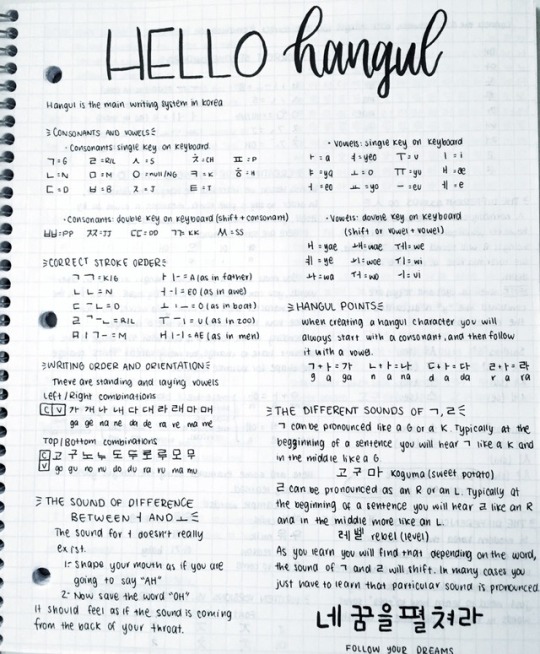 HELLO hangul
Hangul is the main writing system in korea
CONSONANTS AND VOWELS
· Consonants: single key on keyboard
ㄱ=G ㄹ=R/L ㅅ=S ㅊ=CH ㅍ=P
ㄴ=N ㅁ=M ㅇ=null/NG ㅋ=K ㅎ=H
ㄷ=D ㅂ=B ㅈ=J ㅌ=T
· Vowels: single key on keyboard
ㅏ=a ㅕ=yeo ㅜ=u ㅣ=i
ㅑ=ya ㅗ=o ㅠ=yu ㅐ=ae
ㅓ=eo ㅛ=yo ㅡ=eu ㅔ=e
· Consonants: double key on keyboard (shift+consonant)
ㅃ=PP ㅉ=JJ ㄸ=DD ㄲ=KK ㅆ=SS
· Vowels: double key on keyboard
(shift or vowel+vowel)
ㅒ=yae ㅙ=wae ㅞ=we
ㅖ=ye ㅚ=woe ㅟ=wi
ㅘ=wa ㅝ=wo ㅢ=vi
CORRECT STROKE ORDER
ㄱ ㄱ=K/G ㅏ ㅣ-=A (as in father)
ㄴ ㄴ=N ㅓ -ㅣ=EO (as in awe)
ㄷ ㅡㄴ=D ㅗ ㅣㅡ=O (as in boat)
ㄹ ㄱㅡㄴ=R/L ㅜ ㅡㅣ=U (as in zoo)
ㅁ ㅣㄱㅡ=M ㅐ ㅣ-ㅣ=AE (as in men)
WRITING ORDER AND ORIENTATION
There are standing and laying vowels
Left/Right combinations
C V 가 개 나 내 다 대 라 래 마 매
ga ge na ne da de ra re ma me
Top/Bottom combinations
C V 고 구 노 누 도 두 로 루 모 무
go gu no nu do du ro ru mo mu
THE SOUND OF DIFFERENCE
BETWEEN ㅓ AND ㅗ
The sound for ㅓ doesn't really
exist.
1· Shape your mouth as if you are
going to say "AH"
2· Now save the word "OH"
It should feel as if the sound is coming
from the back of your throat.
HANGUL POINTS
When creating a hangul character you will
always start with a consonant, and then follow
it with a vowel.
ㄱ+ㅏ=가 ㄴ+ㅏ=나 ㄷ+ㅏ=다 ㄹ+ㅏ=라
g a ga n a na d a da r a ra
THE DIFFERENT SOUNDS OF ㄱ, ㄹ
ㄱ can be pronounced like a G or a K. Typically at the
begginning of a sentence you will hear ㄱ like a K and
in the middle like a G.
고구마 Koguma (sweet potato)
ㄹ can be pronounced as an R or an L. Typically at
the beginning of a sentence you will hear ㄹ like an R
and in the middle more like an L.
레벨 rebel (level)
As you learn you will find that depending on the word,
the sound of ㄱ and ㄹ will shift. In many cases you
just have to learn that particular sound is pronounced
네 꿈을 펼쳐라
FOLLOW YOUR DREAMS